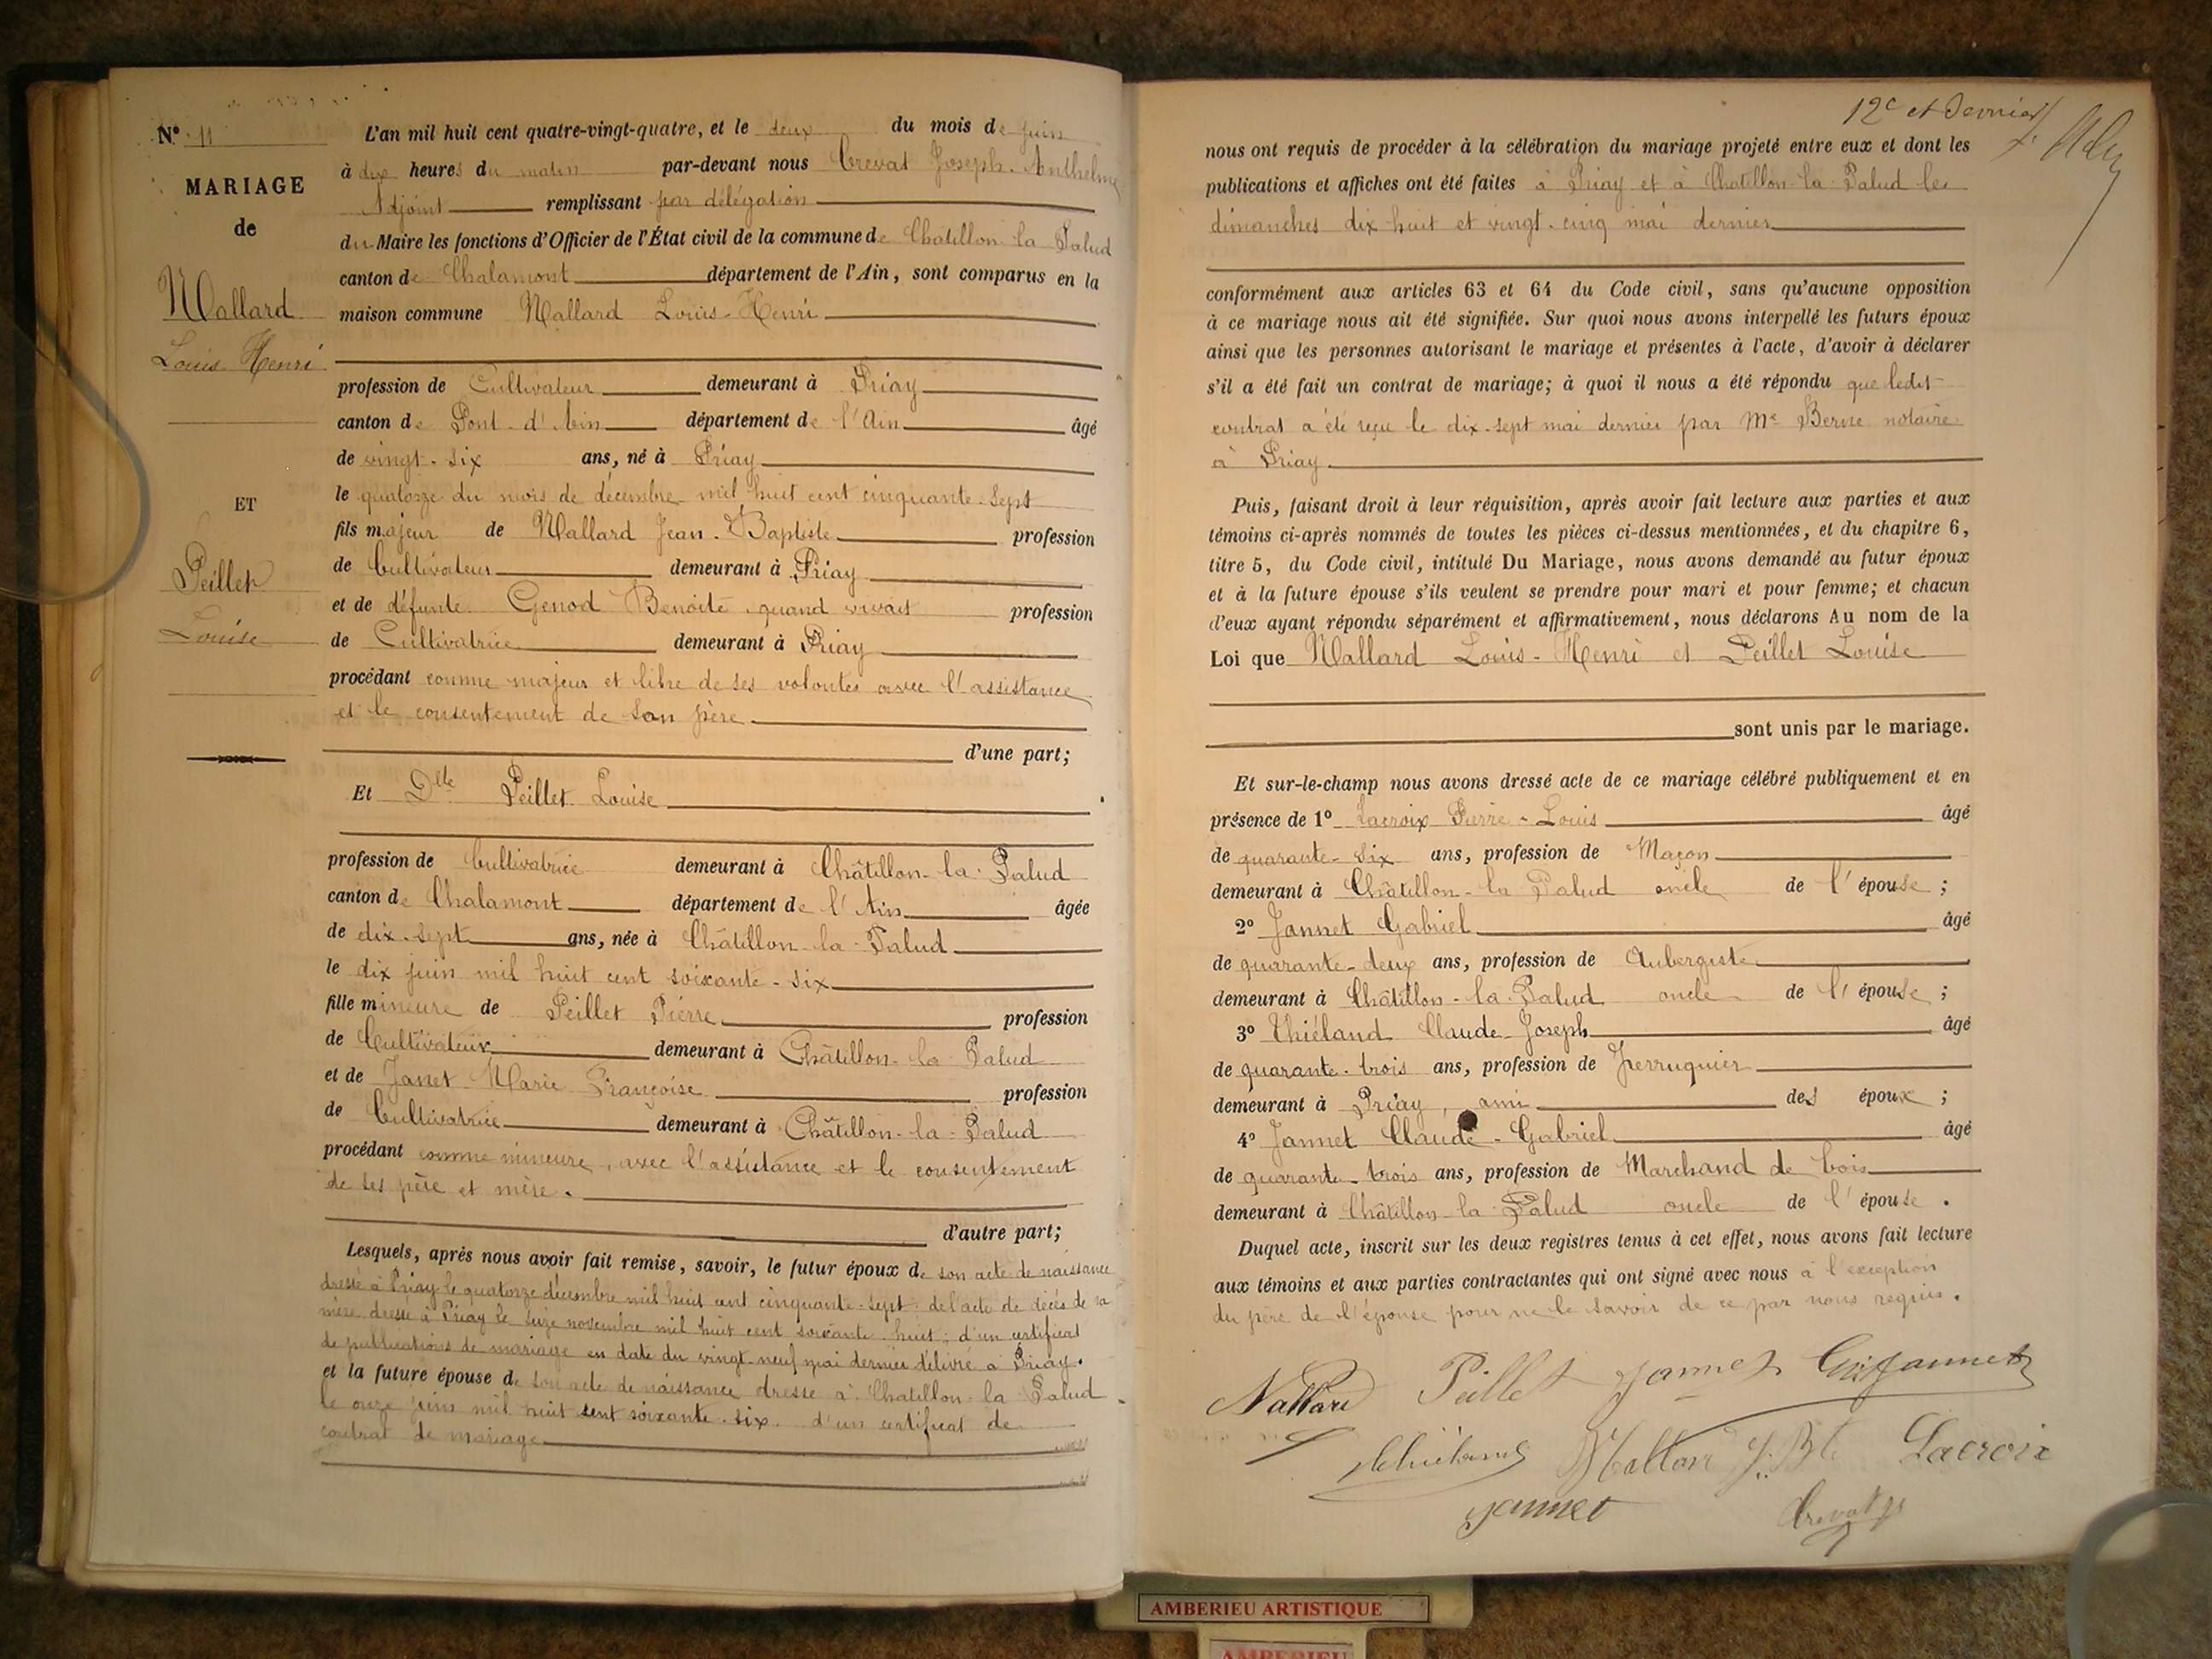 N° 11
MARIAGE
de
Mallard
Louis Henri
ET
Peillet
Louise
L'an mil huit cent quatre-vingt-quatre, et le deux du mois de juin
à dix heures du matin par-devant nous Crevat Joseph-Anthelme
Adjoint remplissant par délégation
du Maire les fonctions d'Officier de l'État civil de la commune de Châtillon la Palud
canton de Chalamont département de l'Ain, sont comparus en la
maison commune Mallard Louis-Henri
profession de Cultivateur demeurant à Priay
canton de Pont-d'Ain département de l'Ain âgé
de vingt-six ans, né à Priay
le quatorze du mois de décembre mil huit cent cinquante-sept
fils majeur de Mallard Jean-Baptiste profession
de Cultivateur demeurant à Priay
et de défunte Genod Benoite quand vivait profession
de Cultivatrice demeurant à Priay
procédant comme majeur et libre de ses volontés avec l'assistance
et le consentement de son père
d'une part;
Et Dlle Peillet Louise
profession de Cultivatrice demeurant à Châtillon-la-Palud
canton de Chalamont département de l'Ain âgée
de dix-sept ans, née à Châtillon-la-Palud
le dix juin mil huit cent soixante-six
fille mineure de Peillet Pierre profession
de Cultivateur demeurant à Châtillon-la-Palud
et de Janet Marie Françoise profession
de Cultivatrice demeurant à Châtillon-la-Palud
procédant comme mineure, avec l'assistance et le consentement
de ses père et mère.
d'autre part;
Lesquels, après nous avoir fait remise, savoir, le futur époux de son acte de naissance
dressé à Priay le quatorze décembre mil huit cent cinquante-sept. de l'acte de décès de sa
mère dressé à Priay le seize novembre mil huit cent soixante-huit; d'un certificat
de publications de mariage en date du vingt-neuf mai dernier délivré à Priay.
et la future épouse de son acte de naissance dressé à Chatillon-la Palud
le onze juin mil huit cent soixante-six. d'un certificat de
contrat de mariage
12e et dernier
nous ont requis de procéder à la célébration du mariage projeté entre eux et dont les
publications et affiches ont été faites à Priay et à Chatillon-la-Palud les
dimanches dix huit et vingt-cinq mai dernier
conformément aux articles 63 et 64 du Code civil, sans qu'aucune opposition
à ce mariage nous ait été signifiée. Sur quoi nous avons interpellé les futurs époux
ainsi que les personnes autorisant le mariage et présentes à l'acte, d'avoir à déclarer
s'il a été fait un contrat de mariage; à quoi il nous a été répondu que ledit
contrat a été reçu le dix-sept mai dernier par Me Berne notaire
à Priay.
Puis, faisant droit à leur réquisition, après avoir fait lecture aux parties et aux
témoins ci-après nommés de toutes les pièces ci-dessus mentionnées, et du chapitre 6,
titre 5, du Code civil, intitulé Du Mariage, nous avons demandé au futur époux
et à la future épouse s'ils veulent se prendre pour mari et pour femme; et chacun
d'eux ayant répondu séparément et affirmativement, nous déclarons Au nom de la
Loi que Mallard Louis-Henri et Peillet Louise
sont unis par le mariage.
Et sur-le-champ nous avons dressé acte de ce mariage célébré publiquement et en
présence de 1° Lacroix Pierre-Louis âgé
de quarante-six ans, profession de Maçon
demeurant à Châtillon-la Palud oncle de l'épouse ;
2° Jannet Gabriel âgé
de quarante-deux ans, profession de Aubergiste
demeurant à Châtillon-la-Palud oncle de l'épouse ;
3° Thiéland Claude-Joseph âgé
de quarante-trois ans, profession de perruquier
demeurant à Priay, ami des époux ;
4° Jannet Claude-Gabriel âgé
de quarante-trois ans, profession de Marchand de bois
demeurant à Châtillon-la-Palud oncle de l'épouse .
Duquel acte, inscrit sur les deux registres tenus à cet effet, nous avons fait lecture
aux témoins et aux parties contractantes qui ont signé avec nous à l'exception
du père de l'épouse pour ne le savoir de ce par nous requis.
Mallard Peillet Jannet Jannet
Thiéland Mallard J. Bte Lacroix
Jannet Crevat
AMBERIEU ARTISTIQUE
AMBERIEU